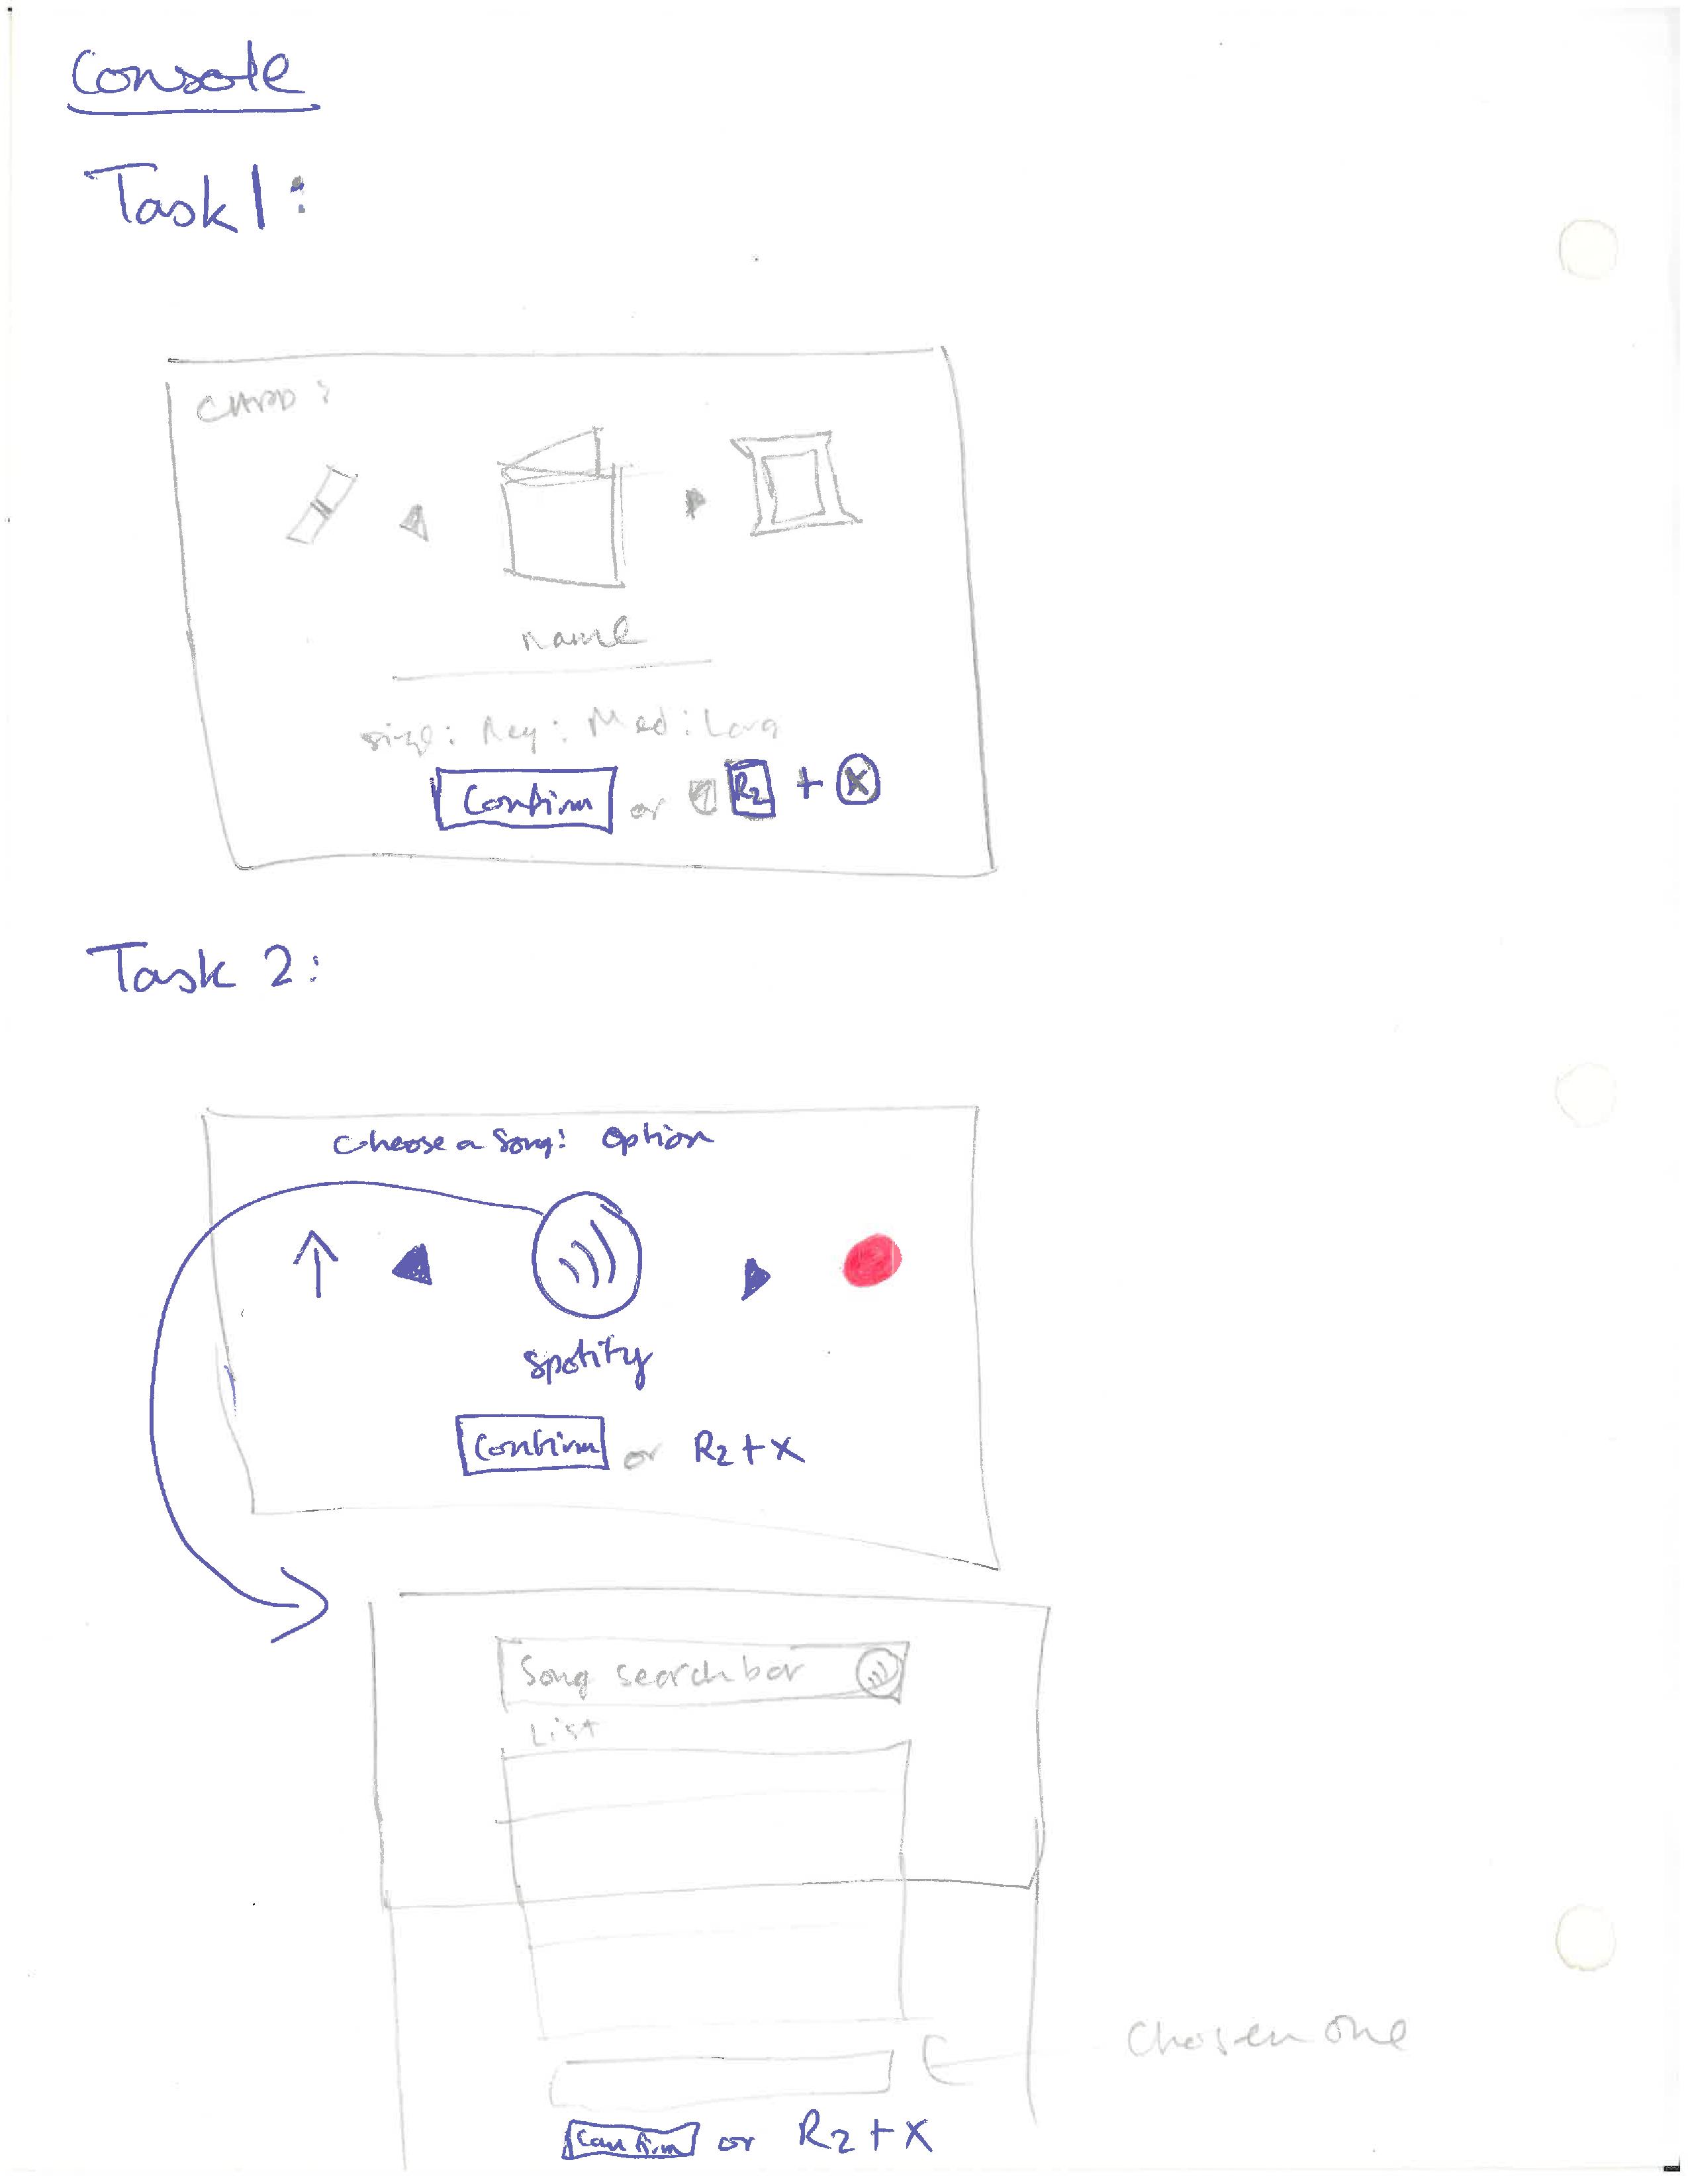 Console
Task 1:
CARD:
Name
size: Reg: Med: Larg
Confirm or R2 + X
Task 2:
Choose a Song: Option
Spotify
Confirm or R2 + X
Song search bar
List
Chosen one
Confirm or R2 + X